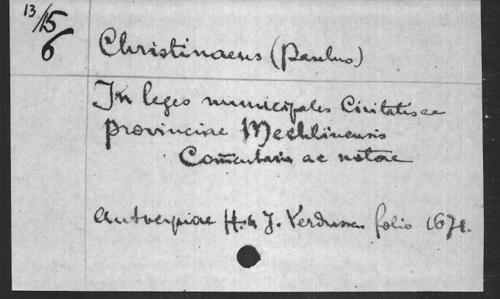 13/15
6
Christinaeus (Paulus)
In leges municipales Civitatis ac
provinciae Mechliniensis
Com̄entaria ac notae
Antverpiae H. & J. Verdussen folio 1671.